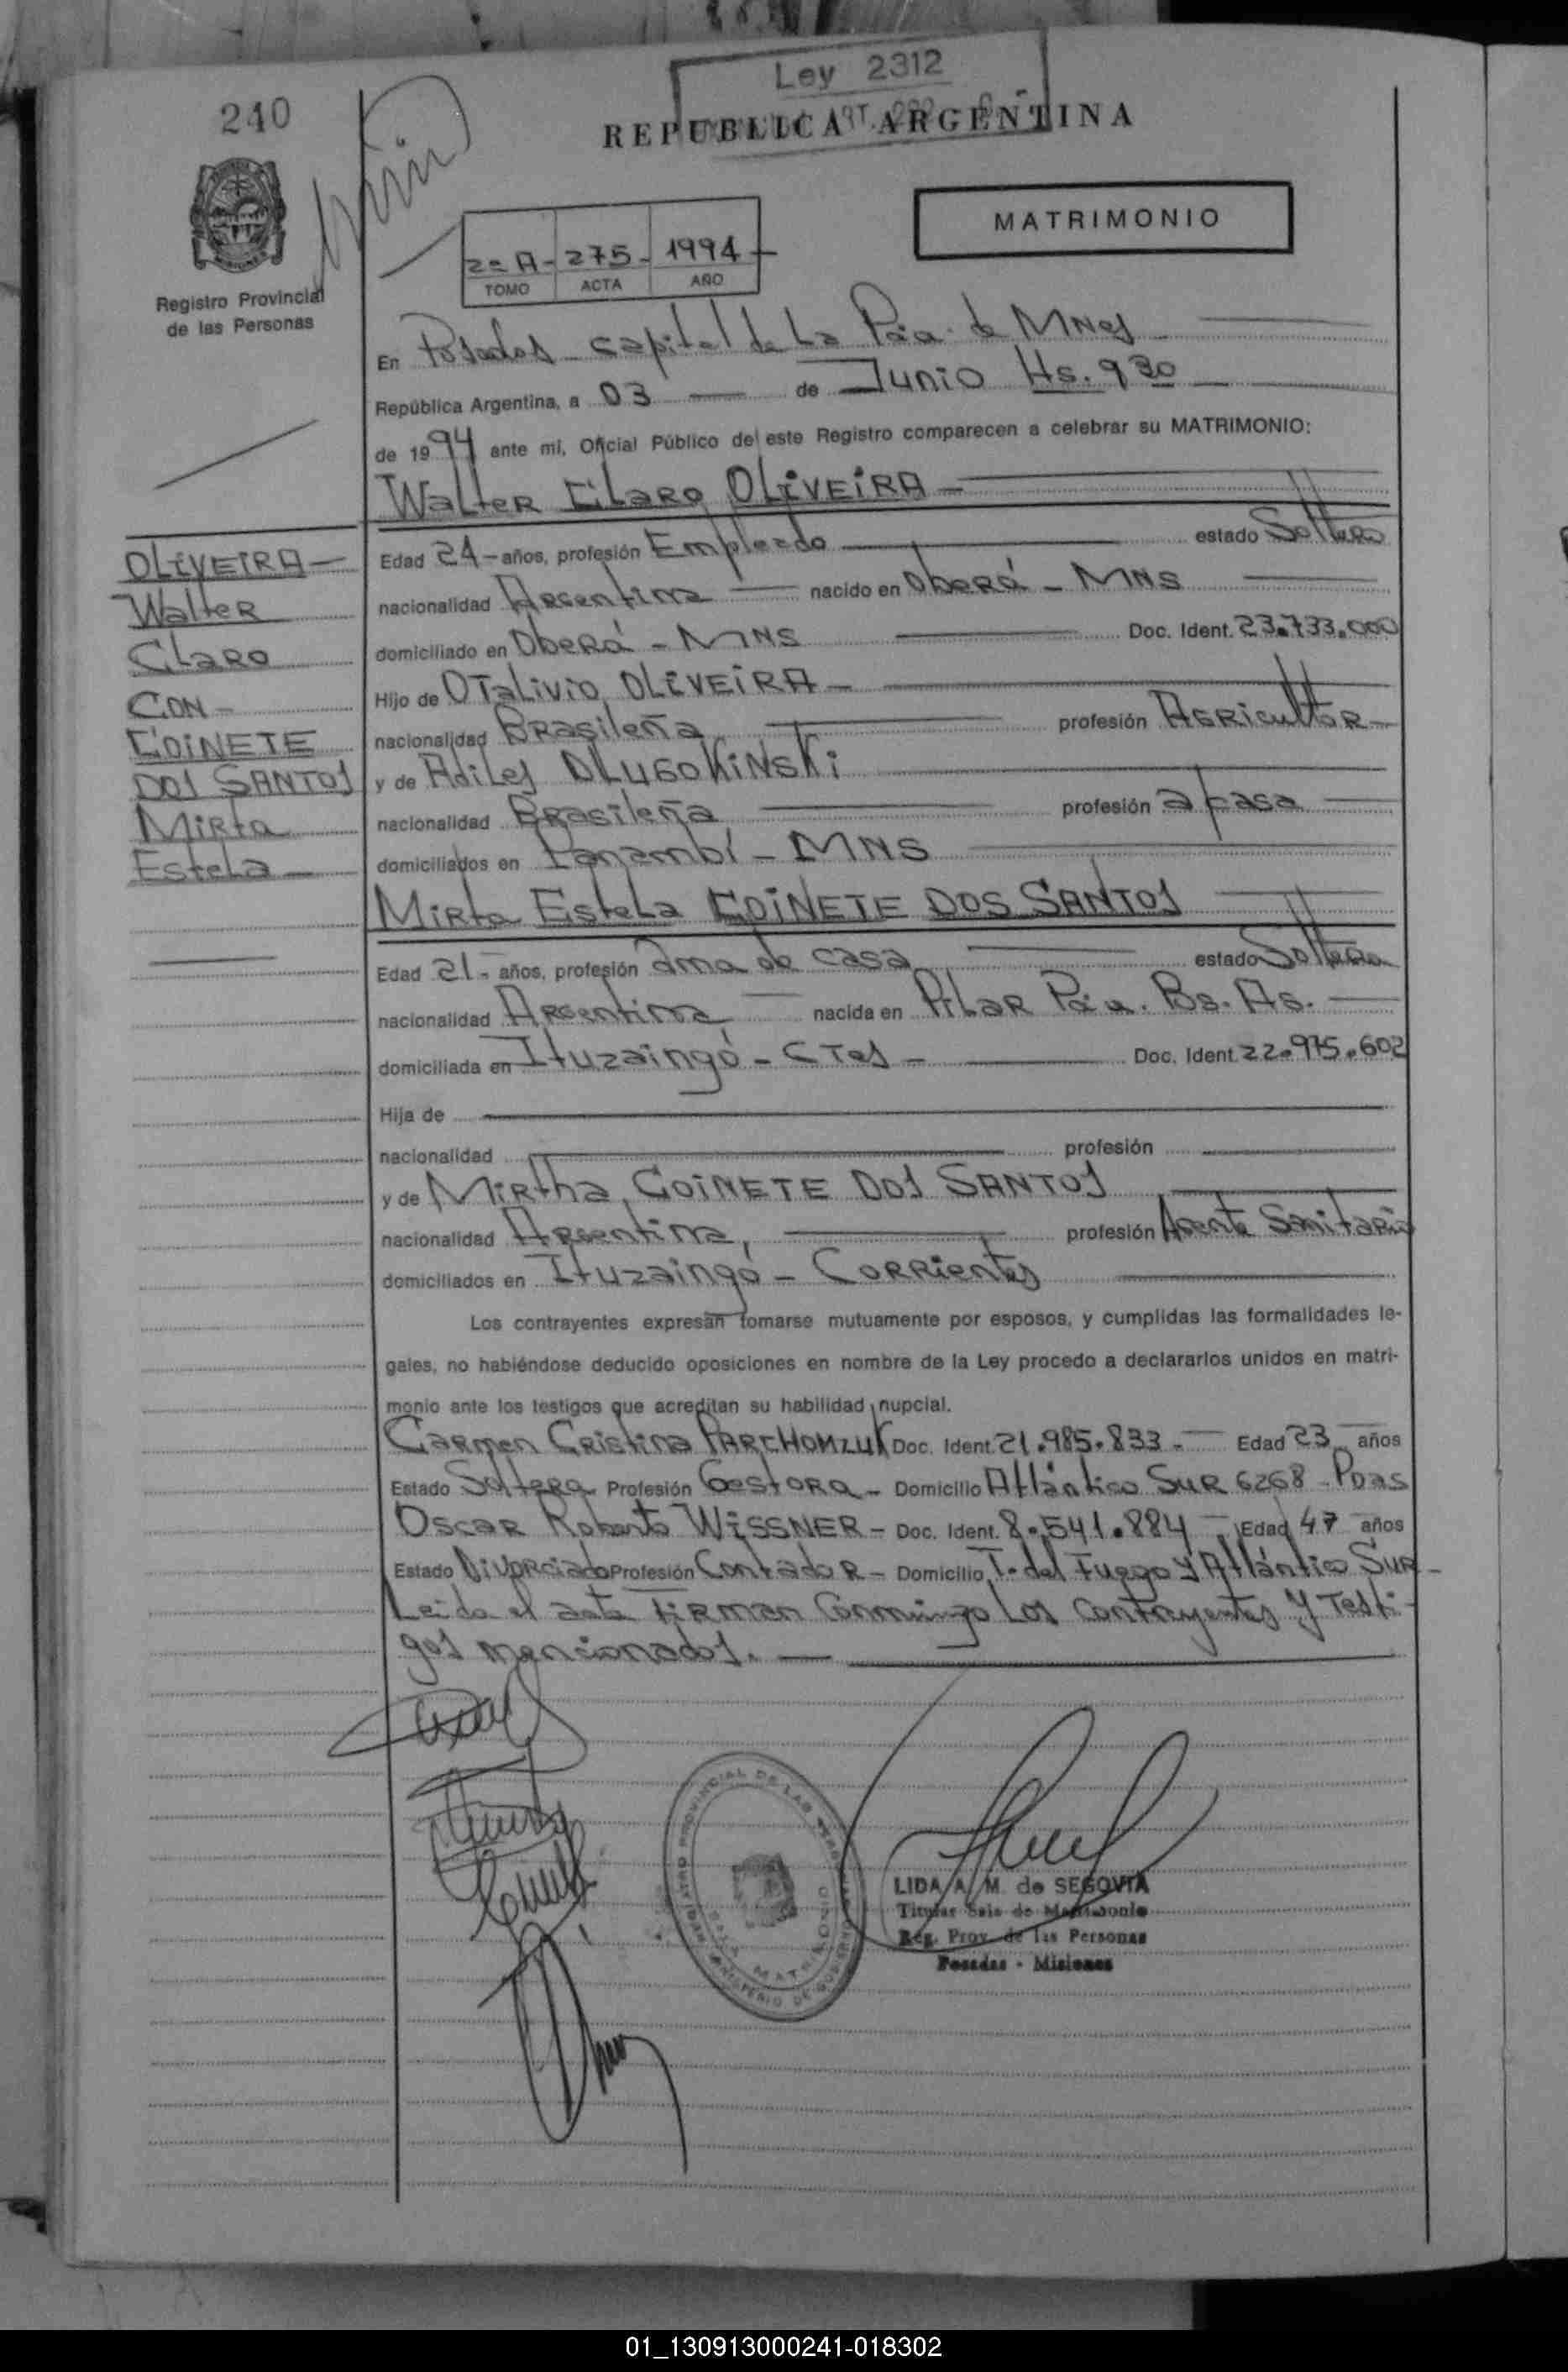 Ley 2312
240
REPUBLICA ARGENTINA
MATRIMONIO
2= A - 275 - 1994
TOMO ACTA AÑO
Registro Provincial
de las Personas
En Posadas capital de La Pcia. de MNes
República Argentina, a 03 de Junio Hs. 9 30
de 1994 ante mí, Oficial Público de este Registro comparecen a celebrar su MATRIMONIO:
Walter Claro OLIVEIRA
OLIVEIRA
Walter
Claro
CON
GOINETE
DOS SANTOS
Mirta
Estela
Edad 24 años, profesión Empleado estado Soltero
nacionalidad Argentina nacido en Oberá - MNS
domiciliado en Oberá - MNS Doc. Ident. 23.733.000
Hijo de OTaLivio OLIVEIRA
nacionalidad Brasileña profesión Agricultor
y de Adiles DLUGOKINSKI
nacionalidad Brasileña profesión a/casa
domiciliados en Panambí - MNS
Mirta Estela GOINETE DOS SANTOS
Edad 21 - años, profesión ama de casa estado Soltera
nacionalidad Argentina nacida en Pilar Pcia. Bs. As.
domiciliada en Ituzaingó - CTes - Doc. Ident. 22.975.602
Hija de
nacionalidad profesión
y de Mirtha GOINETE DOS SANTOS
nacionalidad Argentina, profesión Agente Sanitario
domiciliados en Ituzaingó - Corrientes
Los contrayentes expresan tomarse mutuamente por esposos, y cumplidas las formalidades le-
gales, no habiéndose deducido oposiciones en nombre de la Ley procedo a declararlos unidos en matri-
monio ante los testigos que acreditan su habilidad nupcial.
Carmen Cristina PARCHOMZUK Doc. Ident. 21.985.833.- Edad 23 años
Estado Soltera Profesión Gestora - Domicilio Atlántico Sur 6268 - Pdas
Oscar Roberto WISSNER - Doc. Ident. 8.541.884 Edad 47 años
Estado Divorciado Profesión Contador - Domicilio T. del Fuego y Atlántico Sur -
Leida el acta Firman Conmigo Los Contrayentes y Testi-
gos mencionados.
LIDA A. M. de SEGOVIA
Titular Secc. de Matrimonio
Reg. Prov. de las Personas
Posadas - Misiones
01_130913000241-018302